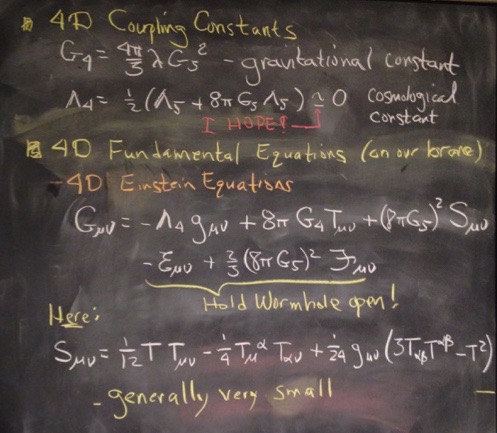 4D Coupling Constants
G₄ = 4π/3 λ G₅² - gravitational constant
Λ₄ = ½(Λ₅ + 8π G₅ Λ₅) ≃ 0 cosmological constant
I HOPE!
4D Fundamental Equations (on our brane)
- 4D Einstein Equations
G_μν = -Λ₄ g_μν + 8π G₄ T_μν + (8π G₅)² S_μν
- ℰ_μν + ⅔ (8π G₅)² ℱ_μν
Hold Wormhole open!
Here:
S_μν = 1/12 T T_μν - ¼ T_μ^α T_αν + 1/24 g_μν (3T_αβ T^αβ - T²)
- generally very small